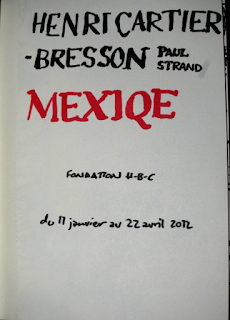 HENRI CARTIER
-BRESSON PAUL
STRAND
MEXIQE
FONDATION H-B-C
du 11 janvier au 22 avril 2012